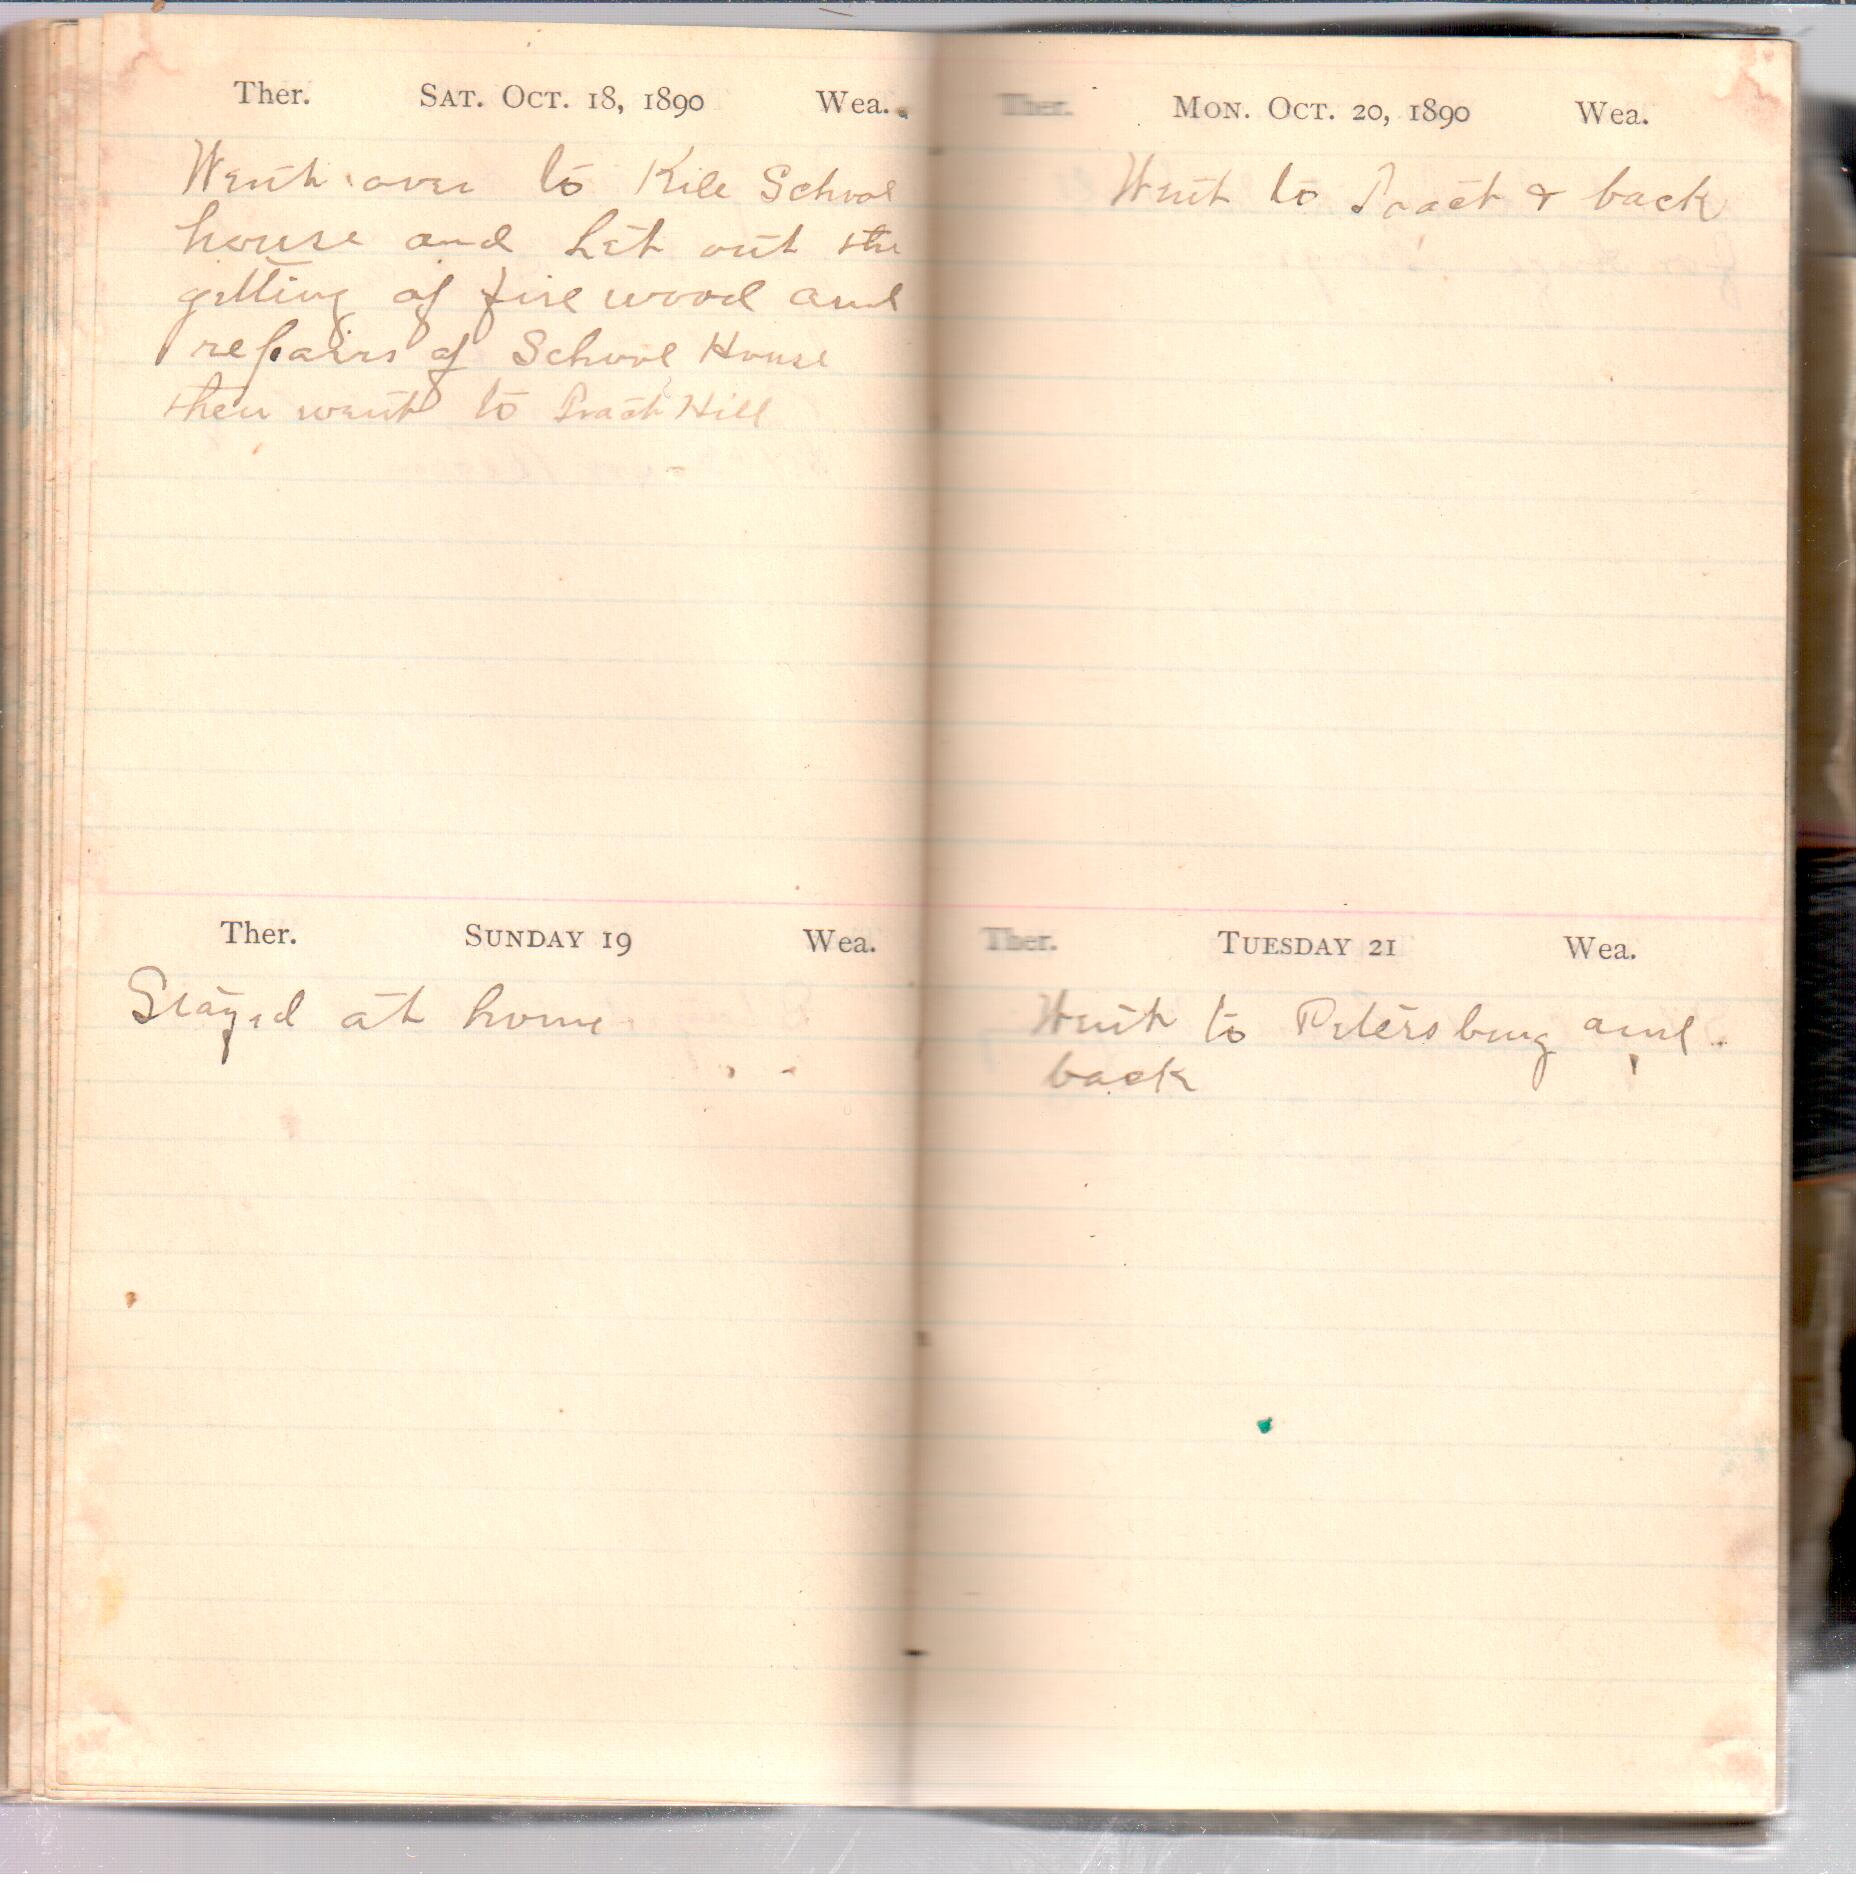 Ther. SAT. OCT. 18, 1890 Wea.
Went over to Kile School
house and Let out the
getting of fire wood and
repairs of School House
then went to Hill
Ther. SUNDAY 19 Wea.
Stayed at home
Ther. MON. OCT. 20, 1890 Wea.
Went to & back
Ther. TUESDAY 21 Wea.
Went to Petersburg and
back